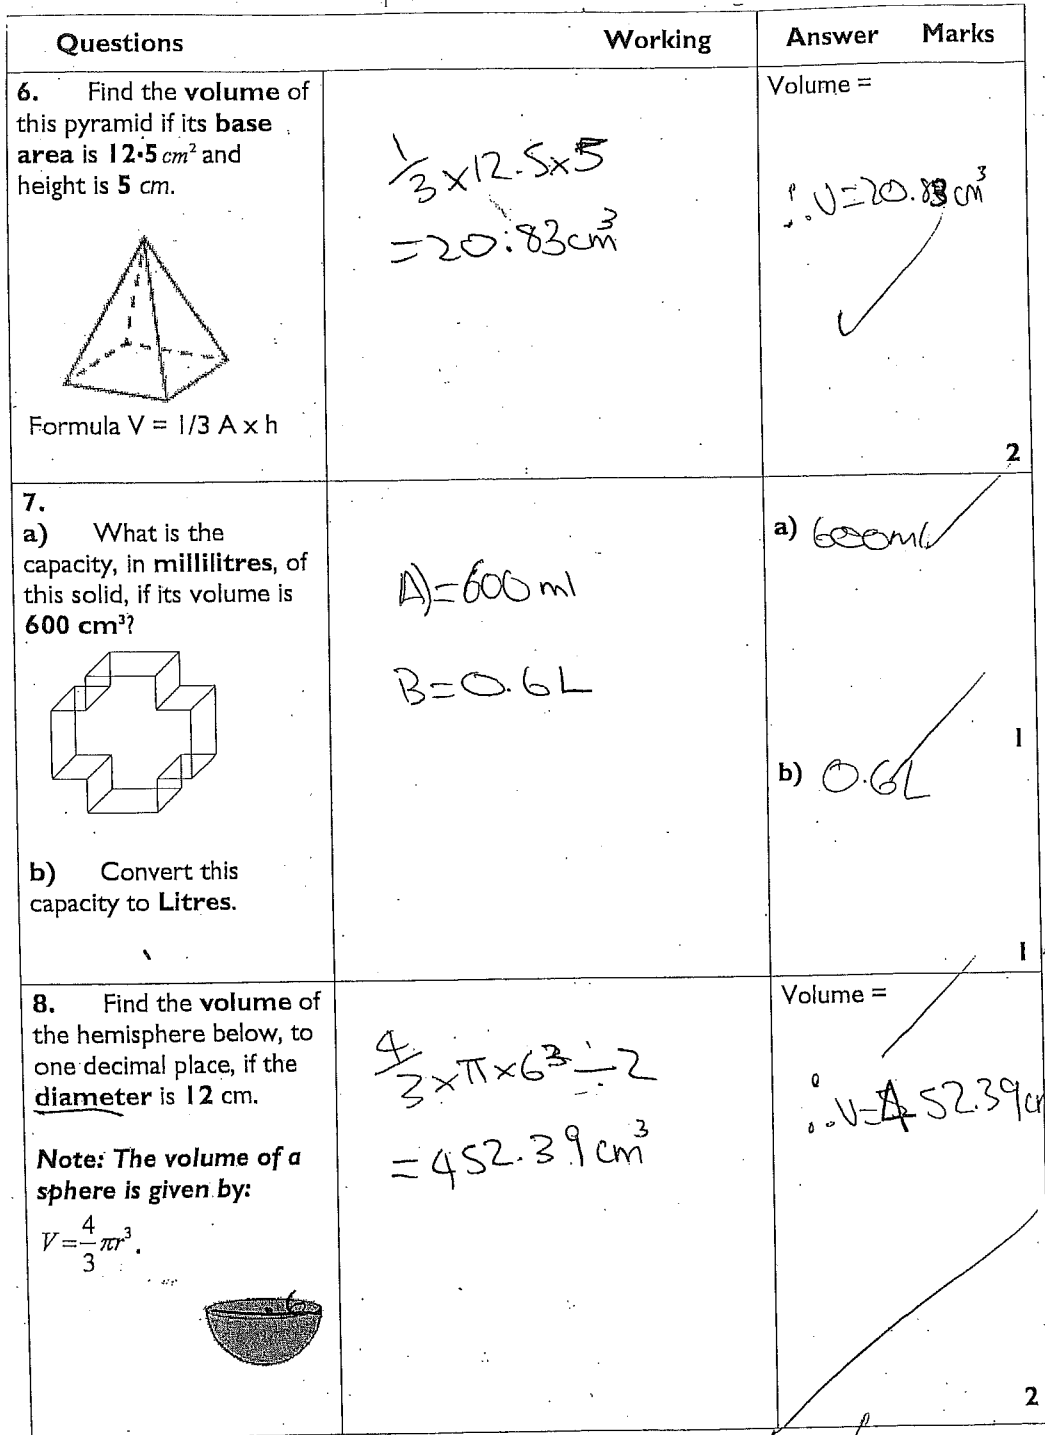 Questions Working Answer Marks
6. Find the volume of
this pyramid if its base
area is 12·5 cm² and
height is 5 cm.
Formula V = 1/3 A x h
1/3 × 12.5 × 5
= 20.83 cm³
Volume =
∴ V = 20.83 cm³
2
7.
a) What is the
capacity, in millilitres, of
this solid, if its volume is
600 cm³?
b) Convert this
capacity to Litres.
A) = 600 ml
B = 0.6 L
a) 600 ml
1
b) 0.6L
1
8. Find the volume of
the hemisphere below, to
one decimal place, if the
diameter is 12 cm.
Note: The volume of a
sphere is given by:
V = 4/3 πr³.
6
4/3 × π × 6³ ÷ 2
= 452.39 cm³
Volume =
∴ V = 452.39 cm
2